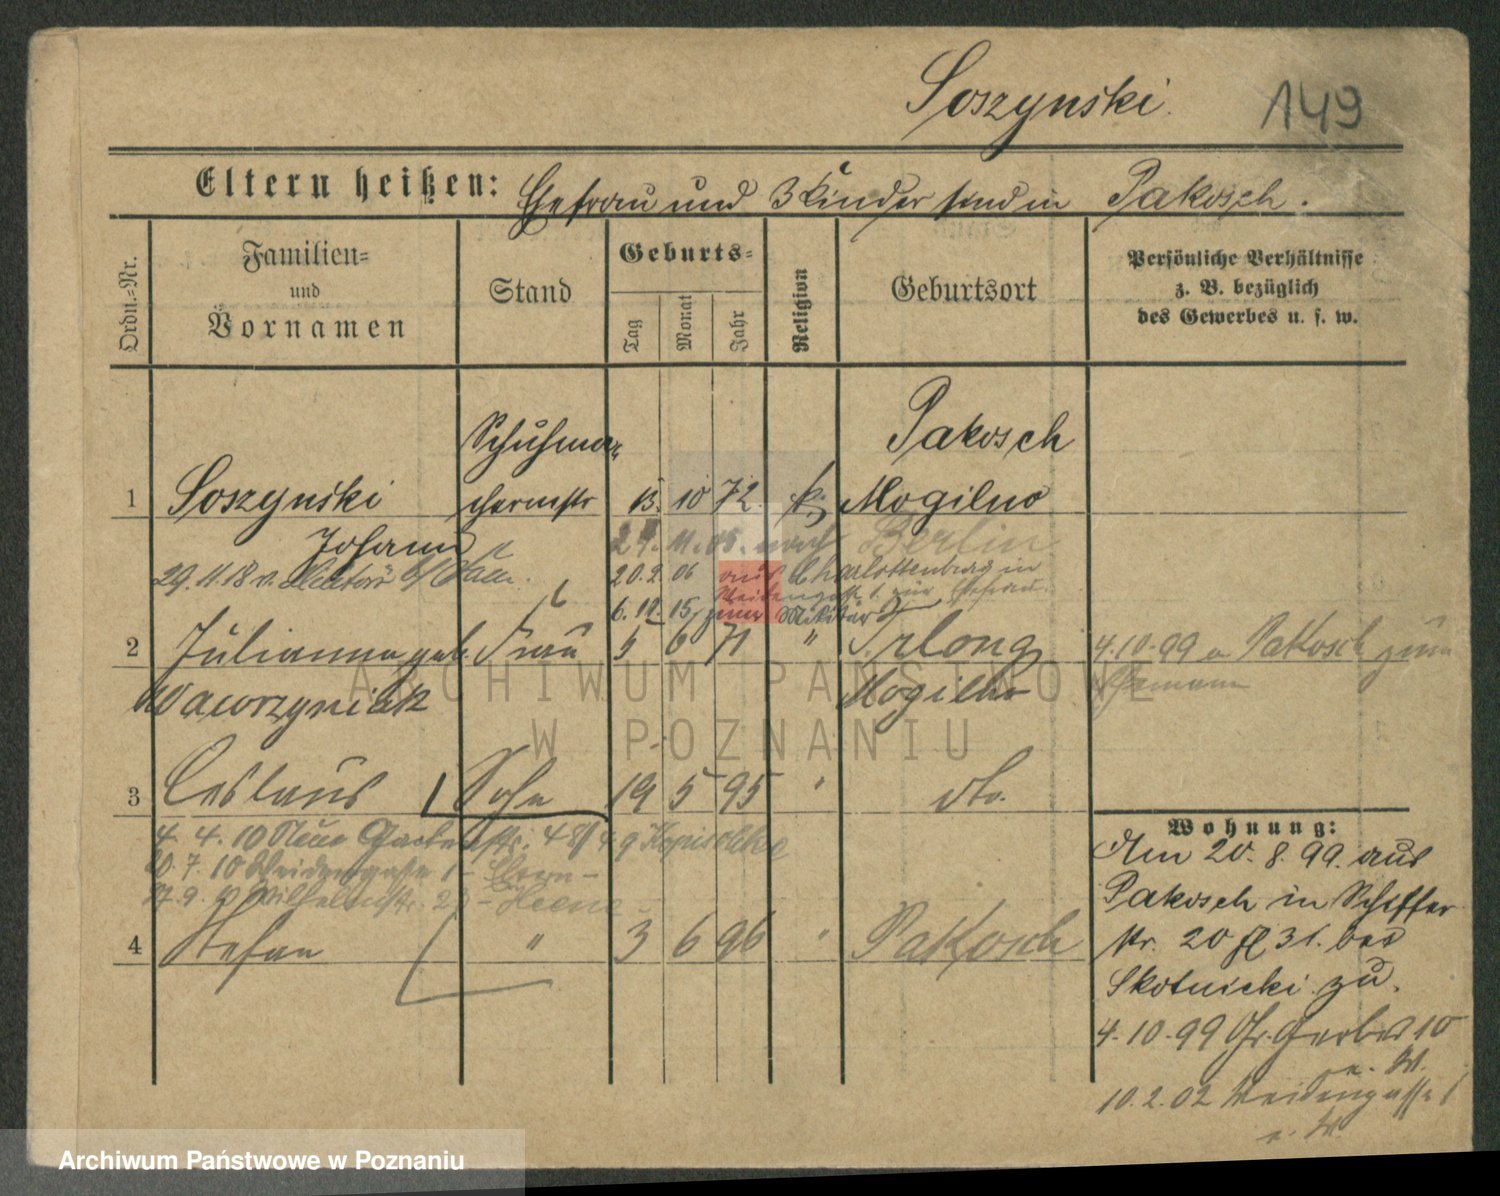 Soszynski. 149
Eltern heißen: Ehefrau und 3 Kinder sind in Pakosch.
Ordn.-Nr.
Familien-
und
Vornamen
Stand
Geburts-
Tag
Monat
Jahr
Religion
Geburtsort
Persönliche Verhältnisse
z. B. bezüglich
des Gewerbes u. s. w.
Schuhma- Pakosch
1 Soszynski chermstr 13. 10 72. k. Mogilno
Johann 29. 11. 05. nach Berlin
29.11.18 v. 20.2 06 aus Charlottenburg in
Weidengasse 1. zur Ehefrau.
6. 12 15, zum Militär
2 Julianna geb. Frau 5 6 71 " 4.10.99 a Pakosch zum
Wawrzyniak Mogilno Ehemann
3 Ceslaus Sohn 19 5 95 " dto.
4. 4. 10 Neue Gartenstr.
20. 7. 10 Weidengasse 1 -
17. 9. Wilhelmstr. 23 - Heene
4 Stefan " 3 6 96 " Pakosch
Wohnung:
Am 20. 8. 99. aus
Pakosch in Schiffer
str. 20 31. bei
Skotnicki zu.
4. 10. 99 Gr. Gerber 10
a. W.
10. 2. 02 Weidengasse 1
a. W.
ARCHIWUM PAŃSTWOWE
W POZNANIU
Archiwum Państwowe w Poznaniu